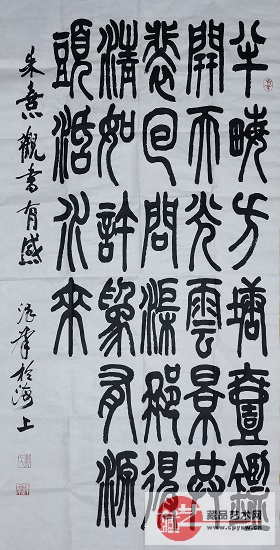 半畮方塘壹鑑
開天光雲景共
裴回問渠那得
清如許為有源
頭活水來
朱熹觀書有感
於海上
藏品艺术网
www.cpysw.com